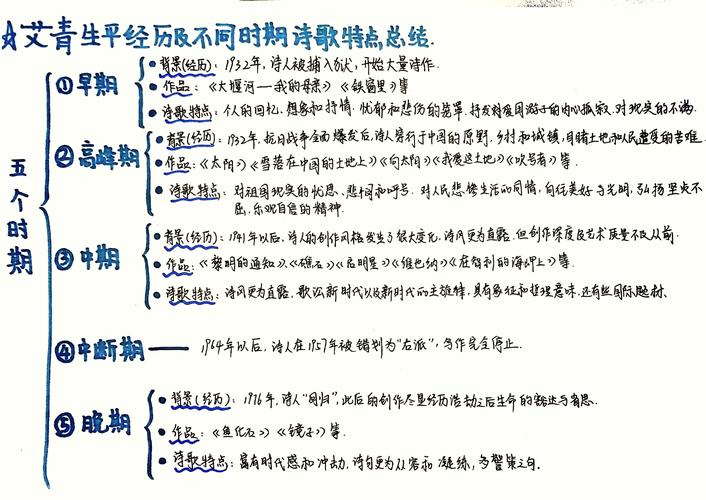 ☆艾青生平经历及不同时期诗歌特点总结.
五个时期
①早期
• 背景(经历): 1932年, 诗人被捕入狱, 开始大量诗作.
• 作品: 《大堰河—我的母亲》《铁窗里》等
• 诗歌特点: 个人的回忆. 想象和抒情. 忧郁和悲伤的 抒发对爱国游子的内心孤寂. 对现实的不满.
②高峰期
• 背景(经历): 1932年, 抗日战争全面爆发后, 诗人穿行于中国的原野. 乡村和城镇, 目睹土地和人民遭受的苦难.
• 作品: 《太阳》《雪落在中国的土地上》《向太阳》《我爱这土地》《吹号者》等.
• 诗歌特点: 对祖国现实的忧思、悲悯和呼号. 对人民悲惨生活的同情, 向往美好与光明, 弘扬坚贞不
屈, 乐观自信的精神.
③中期
• 背景(经历): 1941年以后, 诗人的创作风格发生了很大变化, 诗风更为直露. 但创作深度及艺术质量不及从前.
• 作品: 《黎明的通知》、《礁石》《启明星》《维也纳》《在智利的海岬上》等.
• 诗歌特点: 诗风更为直露, 歌颂新时代以及新时代的主旋律, 具有象征和哲理意味. 还有些国际题材.
④中断期 —— 1964年以后, 诗人在1957年被错划为"右派", 写作完全停止.
⑤晚期
• 背景(经历): 1976年, 诗人"回归", 此后的创作尽显经历浩劫之后生命的豁达与省思.
• 作品: 《鱼化石》《镜子》等.
• 诗歌特点: 富有时代感和冲动, 诗句更为从容和凝练, 多警策之句.